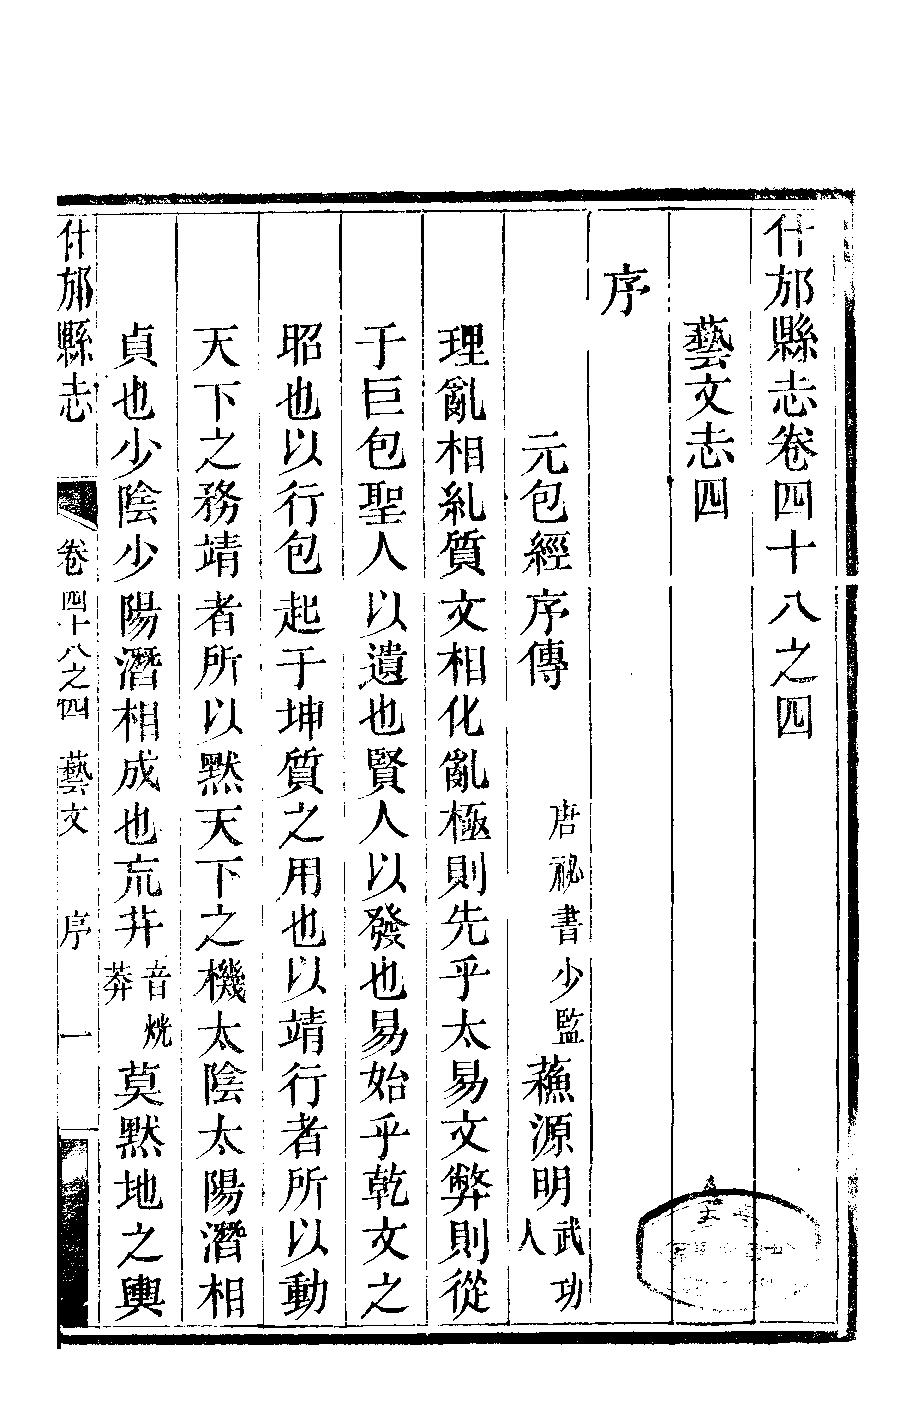 什邡縣志卷四十八之四
藝文志四
序
元包經序傳 唐祕書少監蘓源明武功人
理亂相糺質文相化亂極則先乎太易文弊則從
于巨包聖人以遺也賢人以發也易始乎乾文之
昭也以行包起于坤質之用也以靖行者所以動
天下之務靖者所以默天下之機太陰太陽潛相
貞也少陰少陽潛相成也巟茻音㡆莽莫默地之輿
什邡縣志 卷四十八之四 藝文 序 一